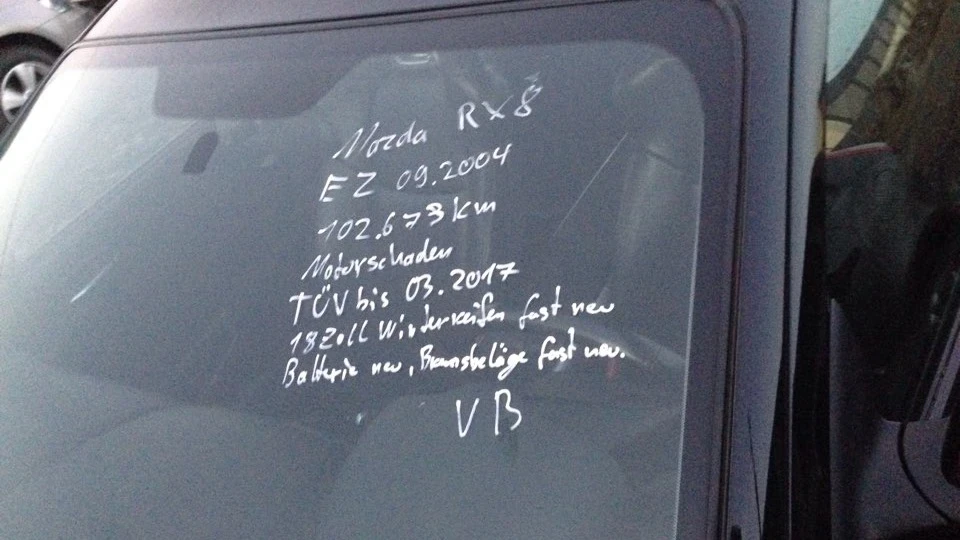 Mazda RX8
EZ 09.2004
102.673 km
Motorschaden
TÜV bis 03.2017
18 Zoll Winterreifen fast neu
Batterie neu, Bremsbeläge fast neu.
VB